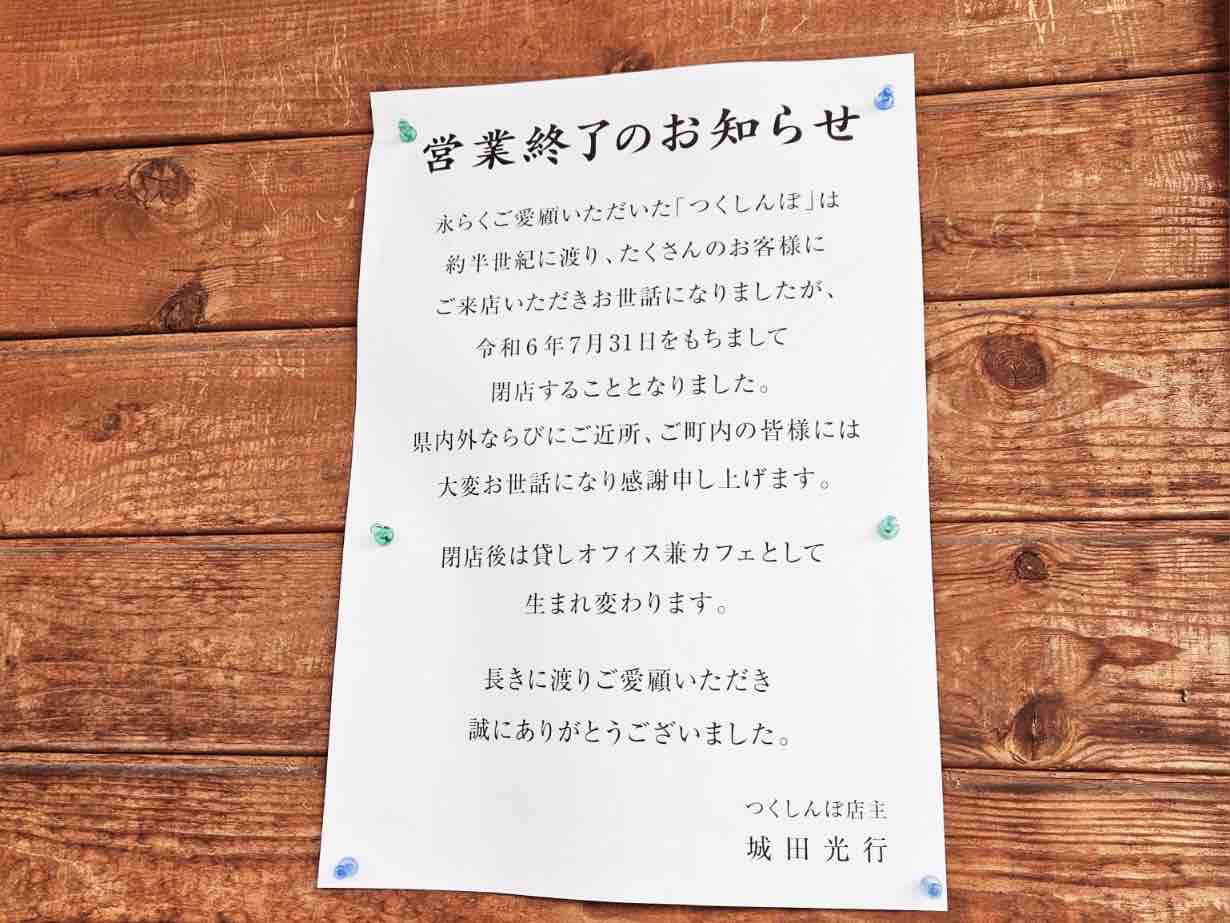 営業終了のお知らせ
永らくご愛顧いただいた「つくしんぼ」は
約半世紀に渡り、たくさんのお客様に
ご来店いただきお世話になりましたが、
令和6年7月31日をもちまして
閉店することとなりました。
県内外ならびにご近所、ご町内の皆様には
大変お世話になり感謝申し上げます。
閉店後は貸しオフィス兼カフェとして
生まれ変わります。
長きに渡りご愛顧いただき
誠にありがとうございました。
つくしんぼ店主
城田光行